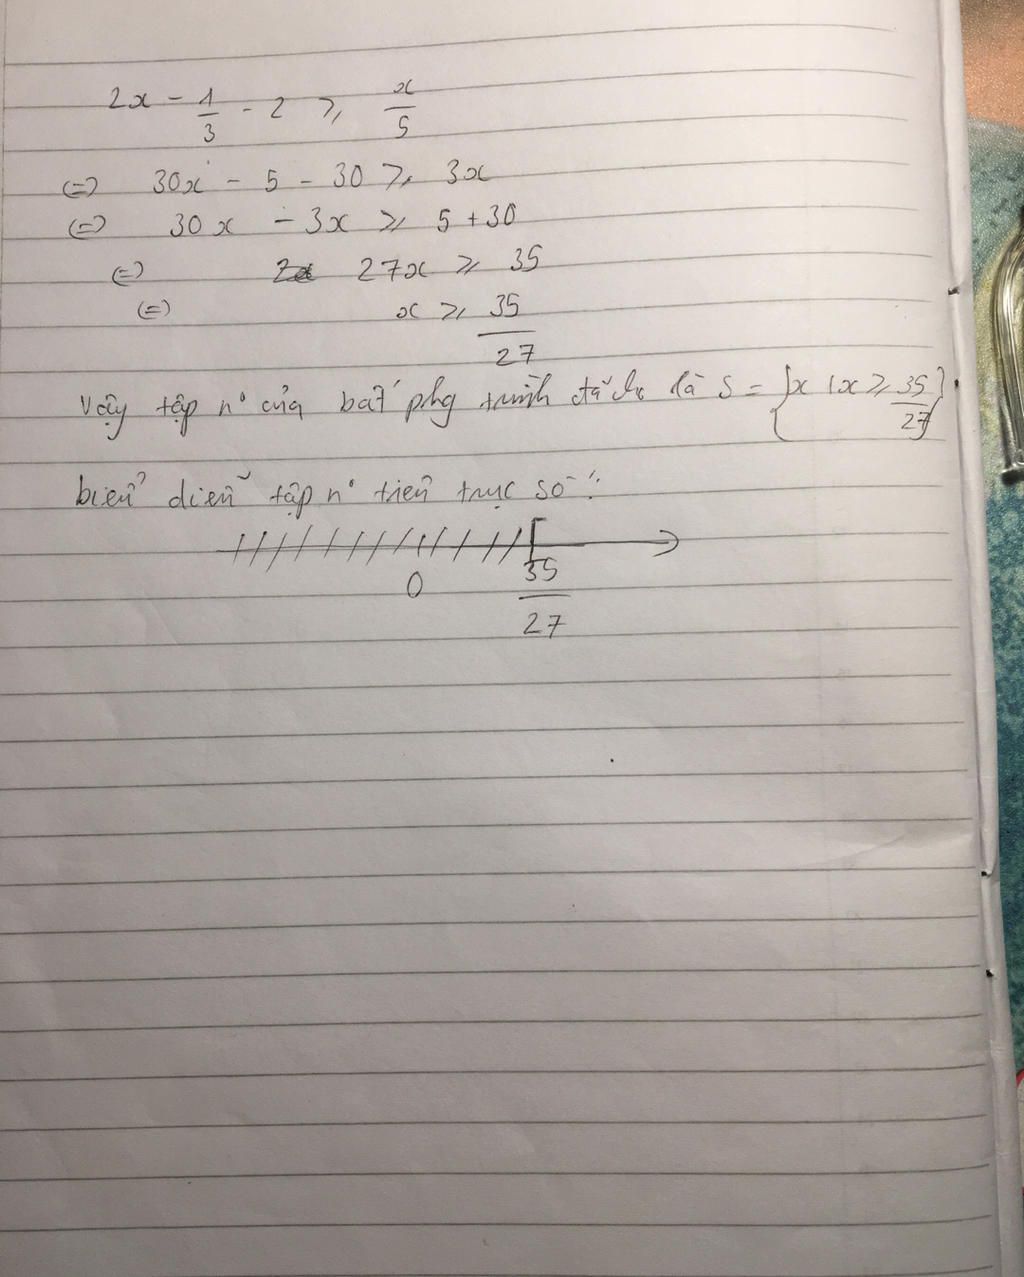 2x - 1/3 - 2 ⩾ x/5
(=) 30x - 5 - 30 ⩾ 3x
(=) 30x - 3x ⩾ 5 + 30
(=) 27x ⩾ 35
(=) x ⩾ 35/27
Vậy tập n° của bất phg trình đã là S = {x | x ⩾ 35/27}
biểu diễn tập n° trên trục số :
0 35/27